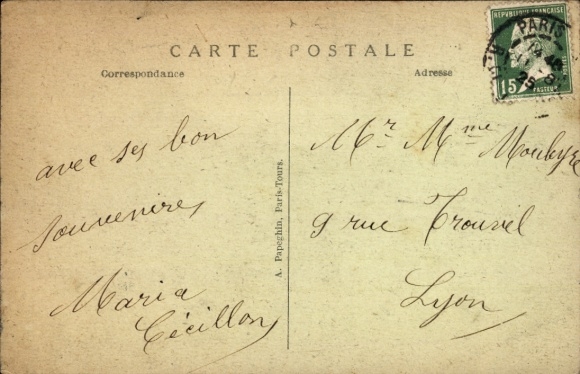 CARTE POSTALE
Correspondance
Adresse
RÉPUBLIQUE FRANÇAISE
15
PASTEUR
PARIS
avec ses bon
souvenires
Maria
Cécillon
A. Papeghin, Paris-Tours.
Mr Mme Moubyre
9 rue Trouvel
Lyon